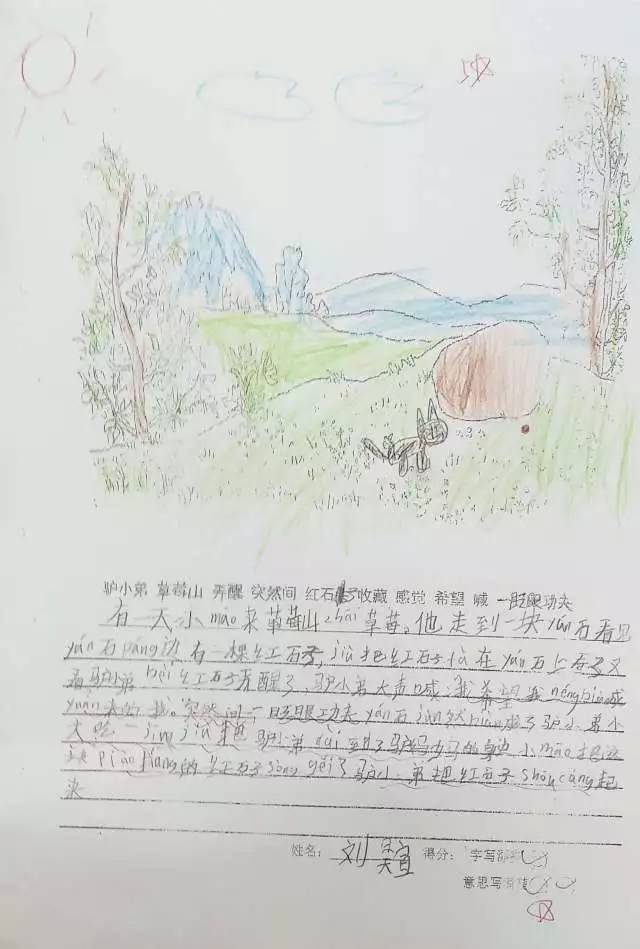 驴小弟 草莓山 弄醒 突然间 红石子 收藏 感觉 希望 喊 一眨眼功夫
有一天小māo来草莓山zhāi草莓。他走到一块yán石看见
yán石páng边有一棵红石子,jiù把红石子fà在yán石上石子又
看驴小弟bèi红石子弄醒了,驴小弟大声喊:我希望我néngbiàn成
yuán来的我。突然间一眨眼功夫yán石jìng然biàn成了驴小弟小
大吃一jīng jiù把驴小弟dài到了驴妈妈的身边小māo把这
piàoliang的红石子sòng gěi了驴小弟把红石子shōucáng起
来
姓名: 刘 得分: 字写
意思写清楚